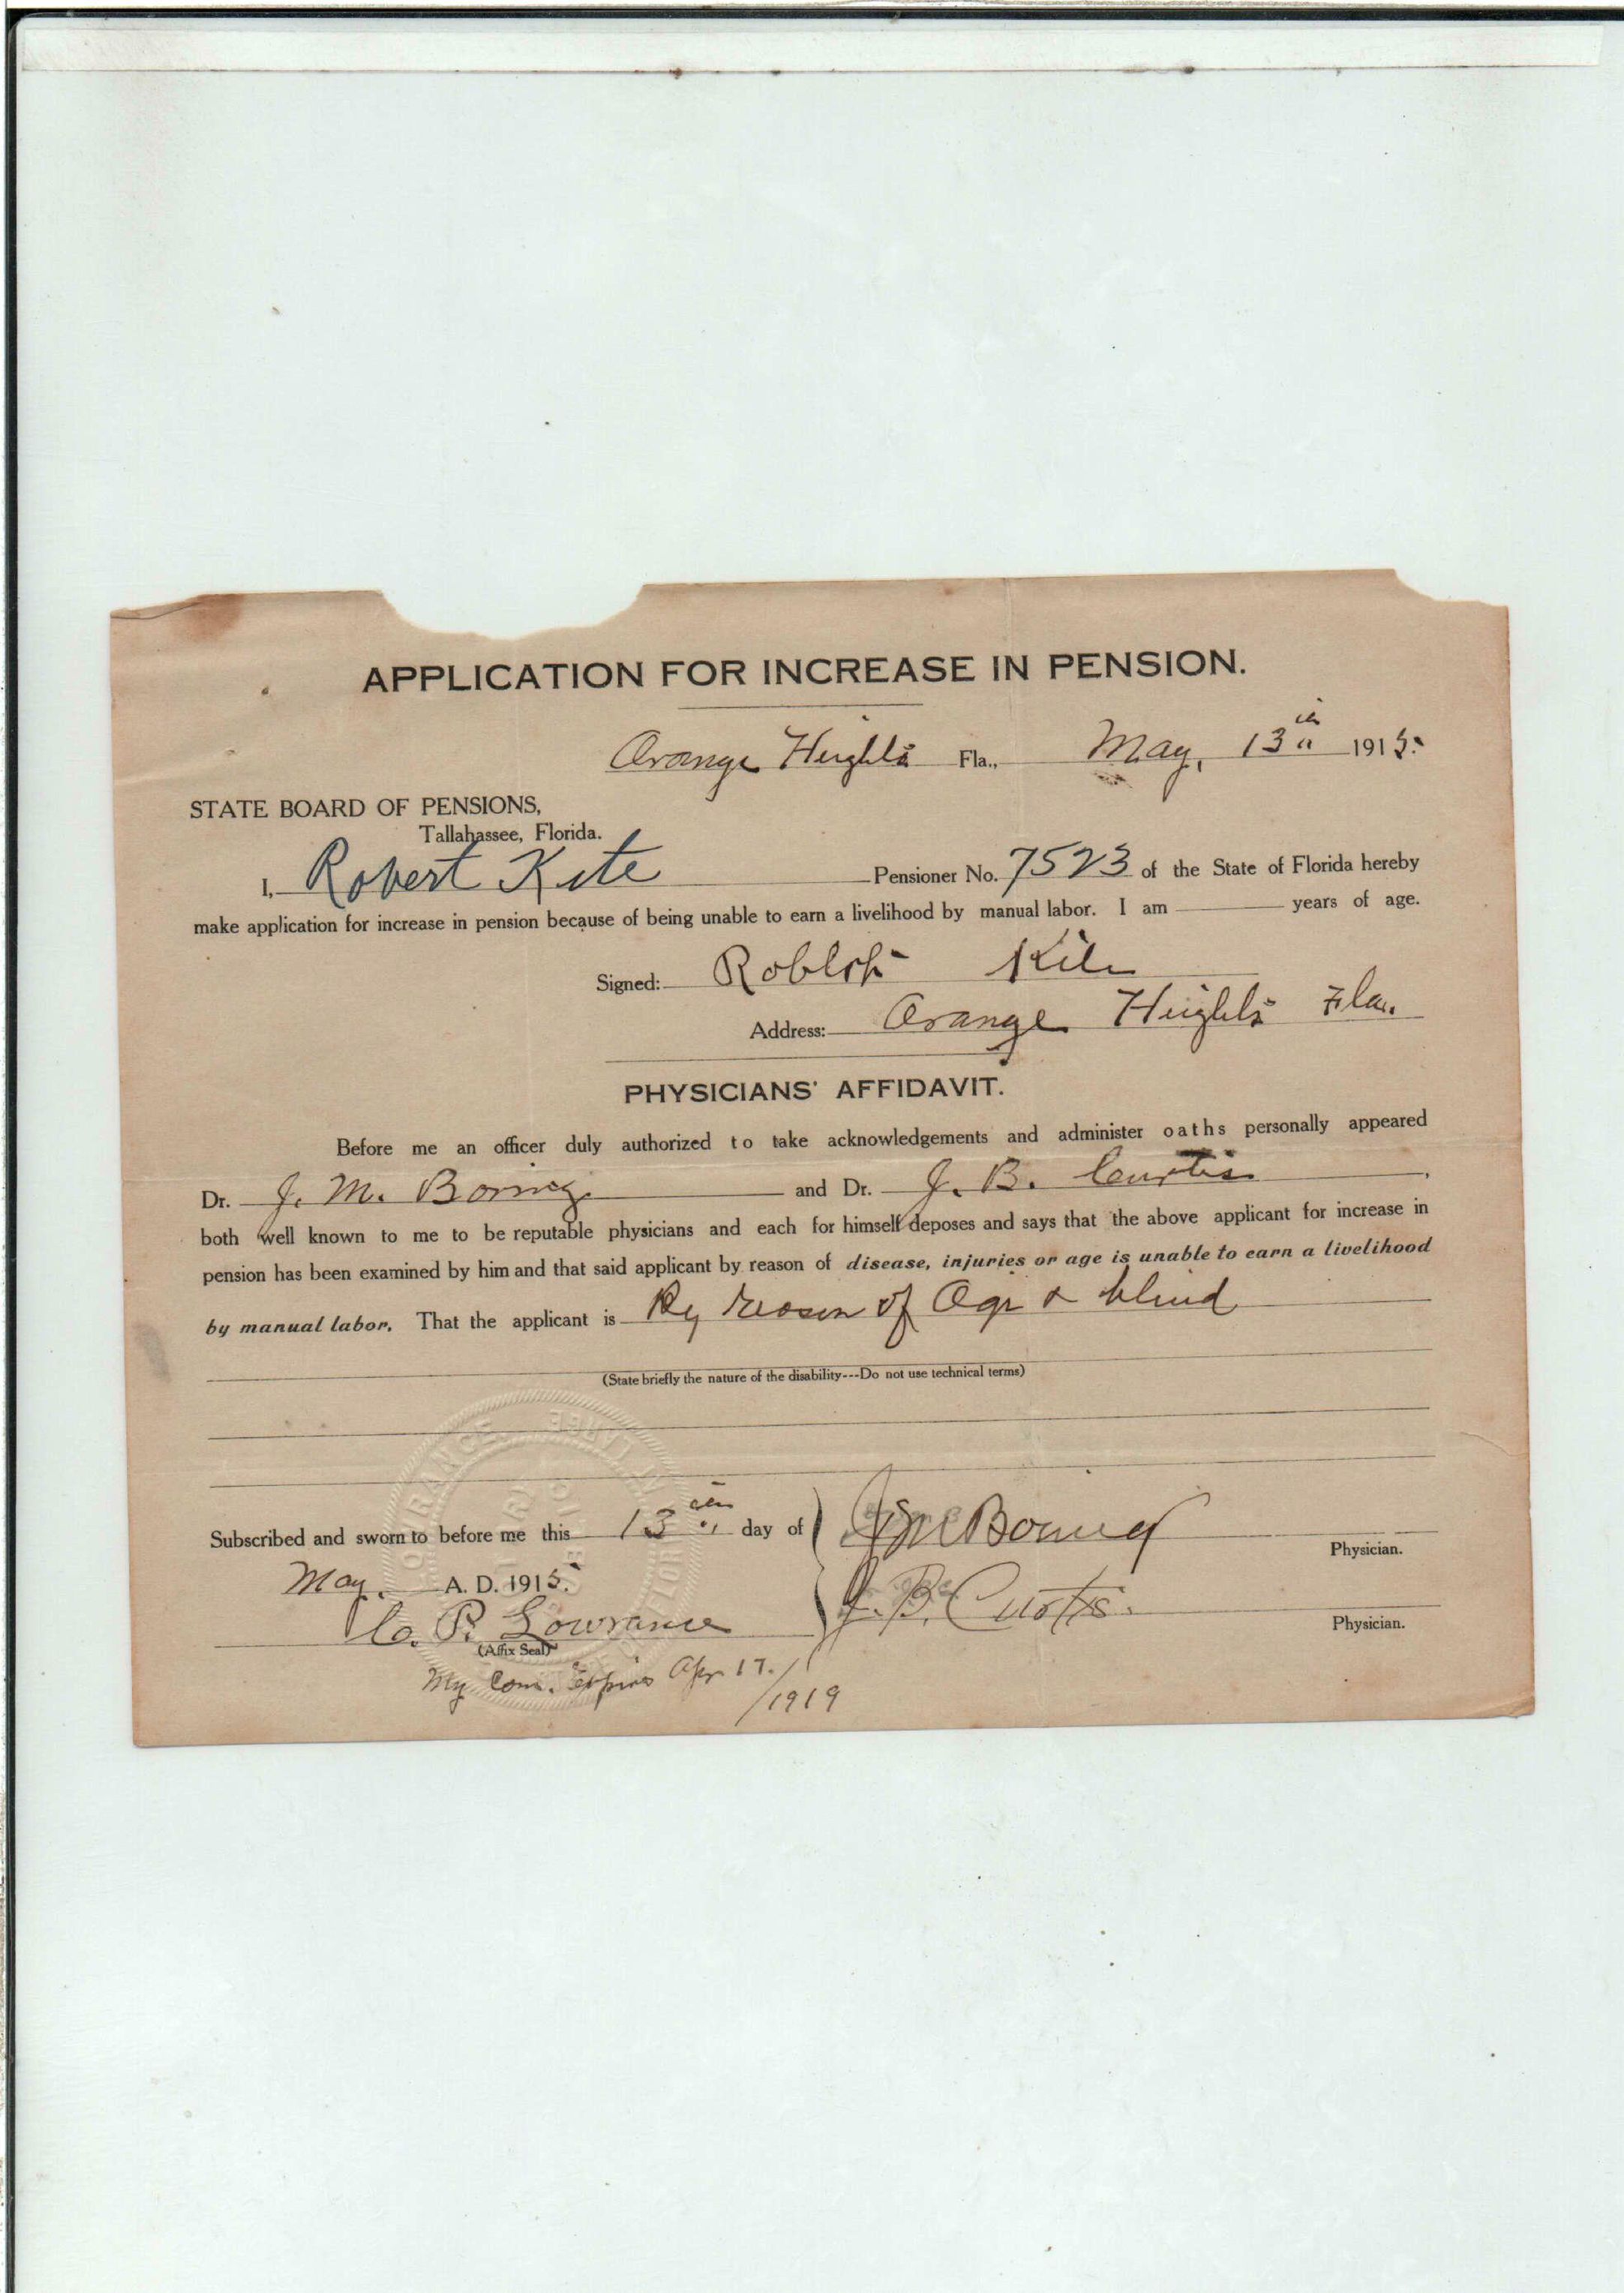 APPLICATION FOR INCREASE IN PENSION.
Orange Heights Fla., May, 13th 1915.
STATE BOARD OF PENSIONS,
Tallahassee, Florida.
I, Robert Kite Pensioner No. 7523 of the State of Florida hereby
make application for increase in pension because of being unable to earn a livelihood by manual labor. I am years of age.
Signed: Kite
Address: Orange Heights Fla.
PHYSICIANS' AFFIDAVIT.
Before me an officer duly authorized to take acknowledgements and administer oaths personally appeared
Dr. J. M. Boring and Dr. J. B. Curtis,
both well known to me to be reputable physicians and each for himself deposes and says that the above applicant for increase in
pension has been examined by him and that said applicant by reason of disease, injuries or age is unable to earn a livelihood
by manual labor. That the applicant is By reason of Age & blind
(State briefly the nature of the disability---Do not use technical terms)
Subscribed and sworn to before me this 13th day of J M Boring
Physician.
May. A. D. 1915. J. B. Curtis.
Physician.
C. P. Lowrance
(Affix Seal)
My Com. Expires Apr 17. / 1919